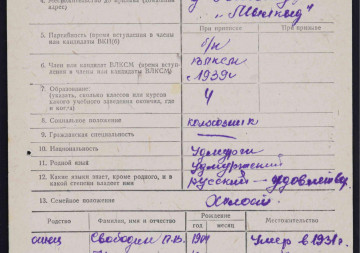 "Маяк"
При приписке При призыве
5. Партийность (время вступления в члены или кандидаты ВКП(б) б/п
6. Член или кандидат ВЛКСМ (время вступления в члены или кандидаты ВЛКСМ) ВЛКСМ
с 1939 г
7. Образование:
(указать, сколько классов или курсов какого учебного заведения окончил, где и когда) 4
8. Социальное положение колхозник
9. Гражданская специальность —
10. Национальность Удмурт
11. Родной язык Удмуртский
12. Какие языки знает, кроме родного, и в какой степени владеет ими русский — удовлетвор.
13. Семейное положение Холост
Родство Фамилия, имя и отчество Рождение Местожительство
год месяц
отец Свободин 1901 Умер в 1931 г.